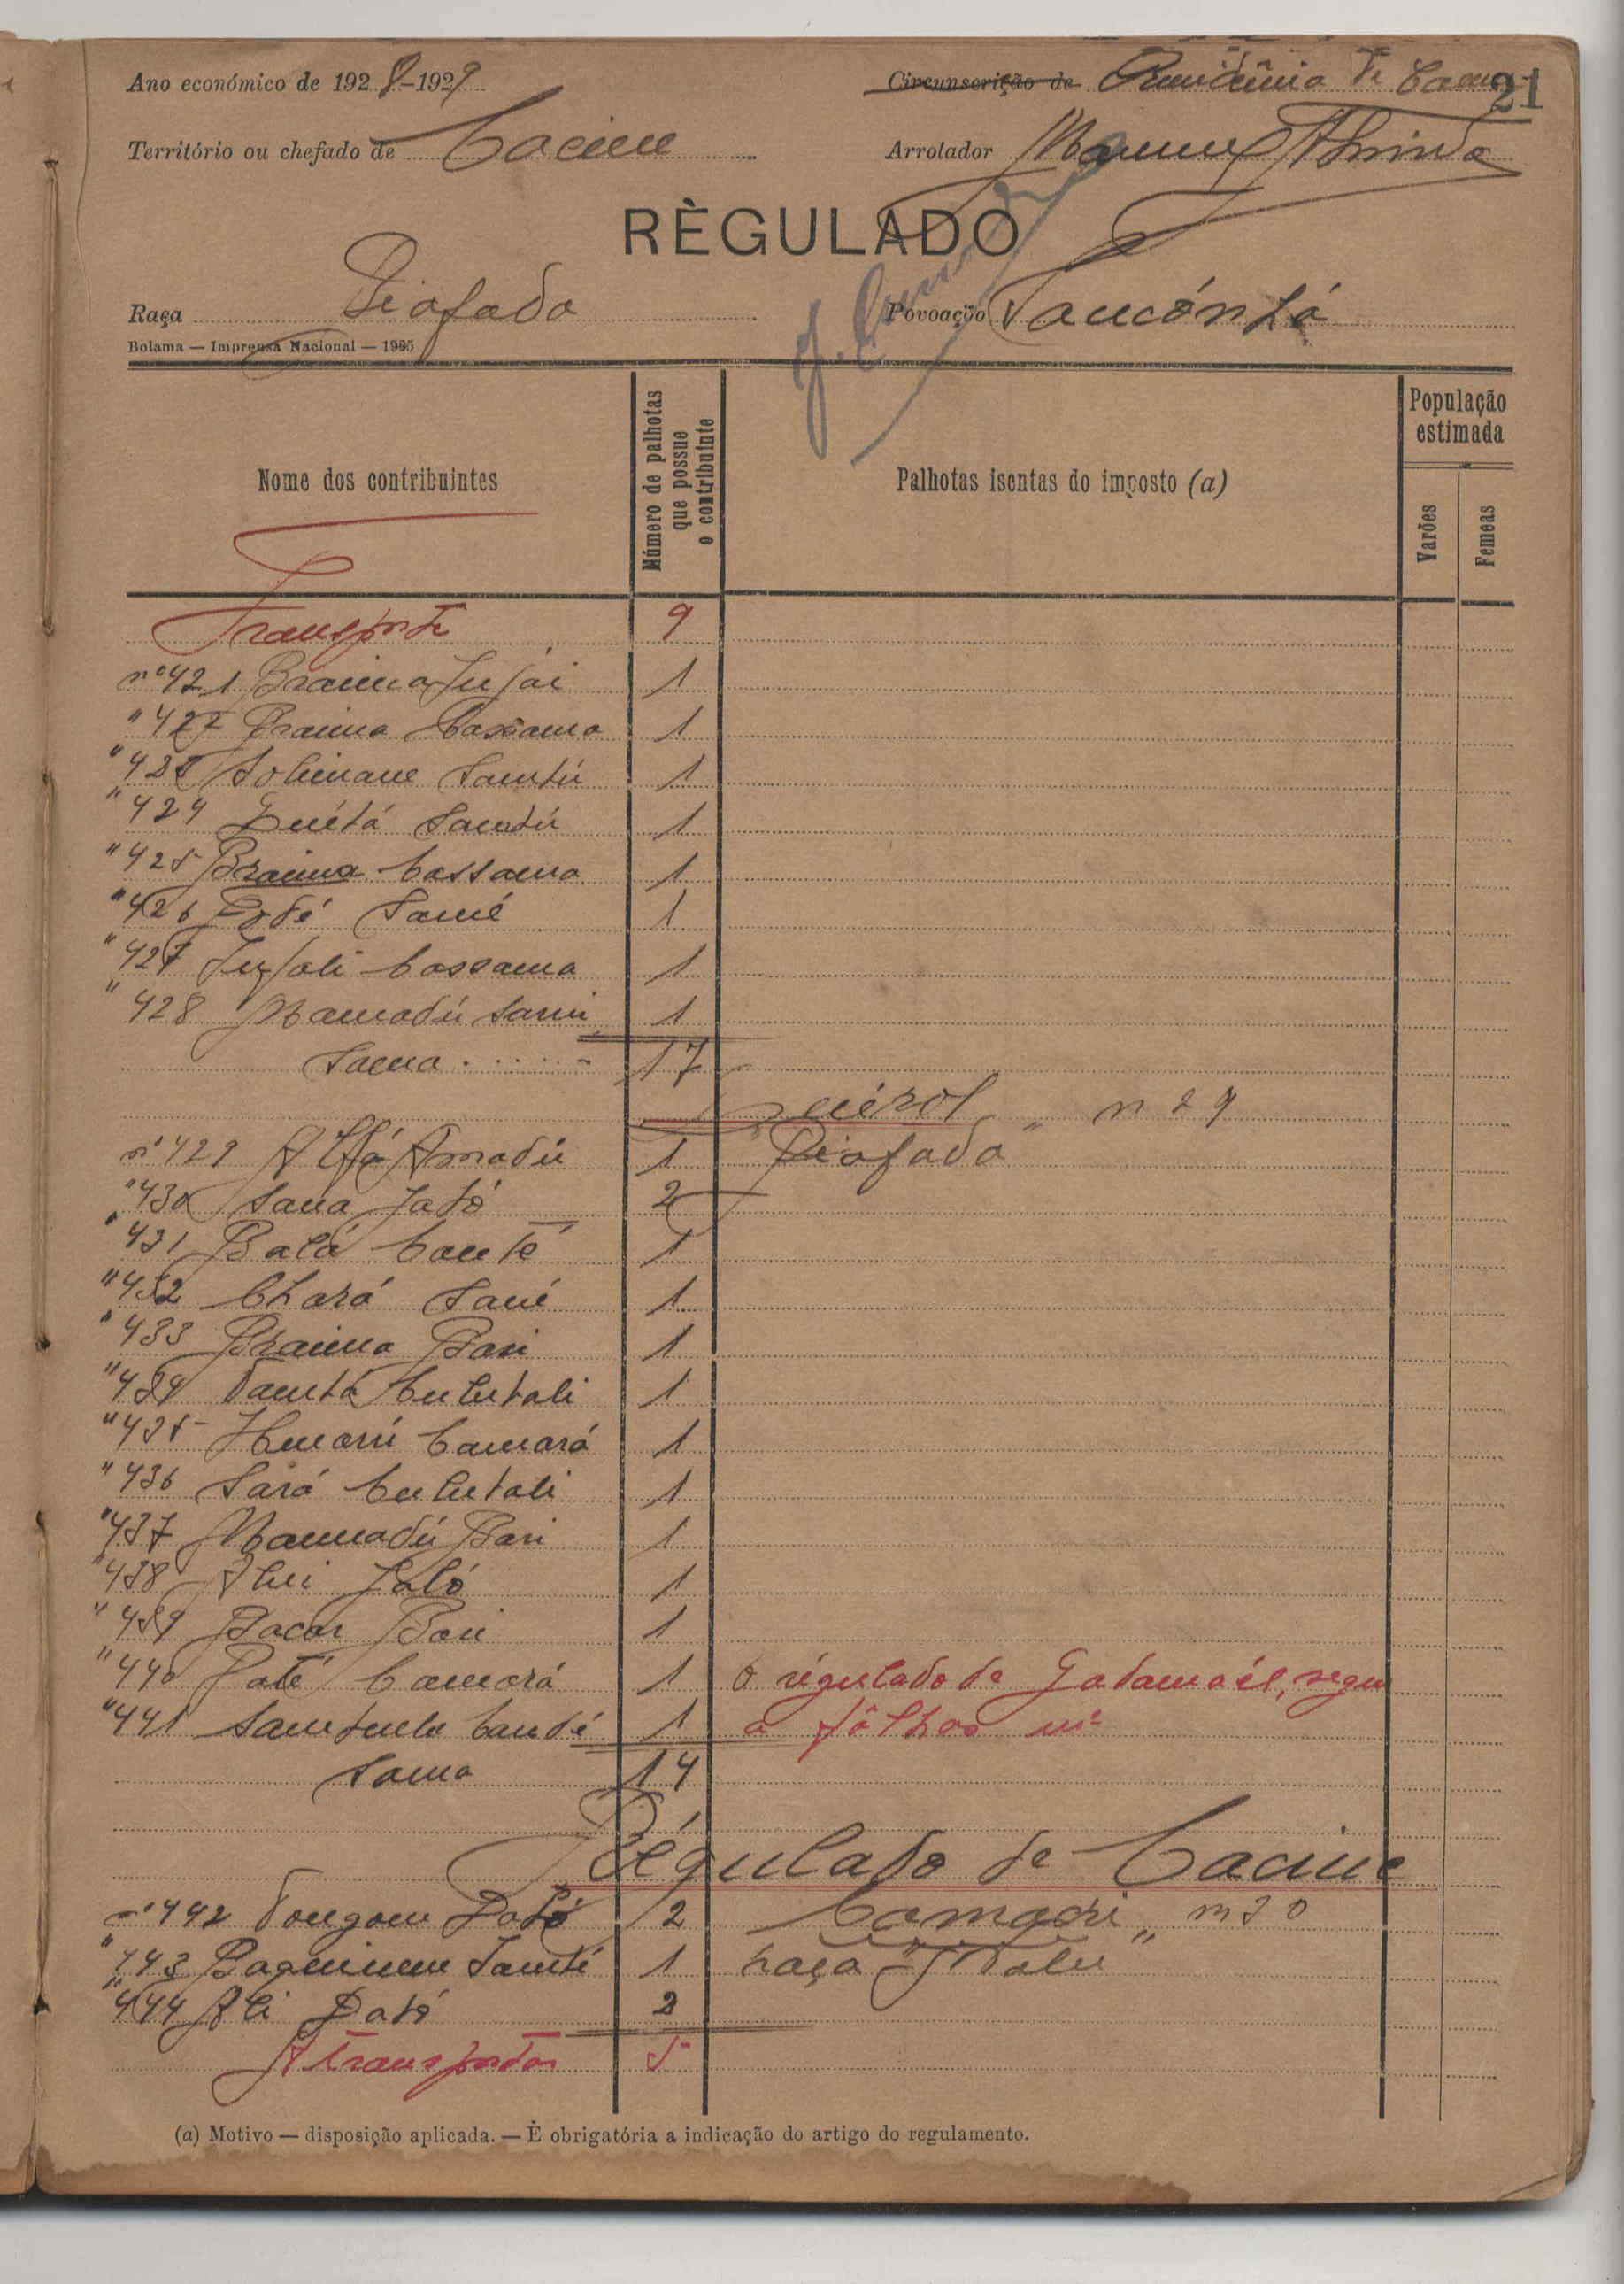 Ano económico de 1928-1929
Circunscrição de Residência de Cacine 21
Território ou chefado de Cacine
Arrolador Manuel
RÈGULADO
Raça Biafada
Povoação
Bolama — Imprensa Nacional — 1925
Nome dos contribuintes
Número de palhotas que possue o contribuinte
Palhotas isentas do imposto (a)
População estimada
Varões
Femeas
Transporte 9
nº 421 Braima Injai 1
" 422 Braima Cassama 1
" 423 Solimane 1
" 424 1
" 425 Braima Cassama 1
" 426 Fodé Sané 1
" 427 Cassama 1
" 428 Mamadú 1
Soma 17
nº 29
nº 429 Alfá Amadú 1 Biafada
" 430 Sana Jaló 2
" 431 Balá 1
" 432 Sané 1
" 433 Braima Bari 1
" 434 Culubali 1
" 435 Camará 1
" 436 Sará Culubali 1
" 437 Mamadú Bari 1
" 438 Jaló 1
" 439 Bacar Bari 1
" 440 Paté Camará 1 O régulado de Gadamaél, segue
" 441 Candé 1 a fôlhas nº
Soma 14
Régulado de Cacine
nº 442 2 nº 30
" 443 1 raça "Nalú"
" 444 Ali 2
A transportar 5
(a) Motivo — disposição aplicada. — È obrigatória a indicação do artigo do regulamento.